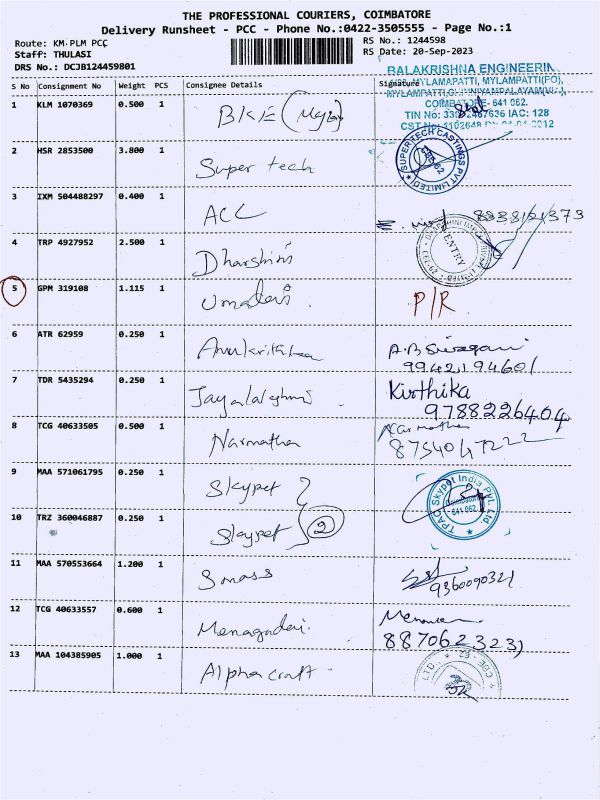 THE PROFESSIONAL COURIERS, COIMBATORE
Delivery Runsheet - PCC - Phone No.:0422-3505555 - Page No.:1
Route: KM-PLM PCC
Staff: THULASI
DRS No.: DCJB124459801
RS No.: 1244598
RS Date: 20-Sep-2023
S No Consignment No Weight PCS Consignee Details Signature
BALAKRISHNA ENGINEERIN
MYLAMAPATTI, MYLAMPATTI(PO),
COIMBATORE- 641 062.
1 KLM 1070369 0.500 1 BKE
2 HSR 2853500 3.800 1 Super tech SUPER TECH CASTINGS PVT LIMITED CBE-62
3 IXM 504488297 0.400 1 ACC
4 TRP 4927952 2.500 1 Dharshini ENTRY
5 GPM 319108 1.115 1 Umadevi P/R
6 ATR 62959 0.250 1
9942194601
7 TDR 5435294 0.250 1 Jayalakshmi Kirthika
9788226404
8 TCG 40633505 0.500 1 Narmatha Narmatha
8754047222
9 MAA 571061795 0.250 1 Skypet TPAC Skypet India Pvt. Ltd. Coimbatore 641 062
10 TRZ 360046887 0.250 1 Skypet 2
11 MAA 570553664 1.200 1 Smass
9360090321
12 TCG 40633557 0.600 1
8870623231
13 MAA 104385905 1.000 1 Alpha craft